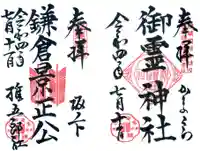 奉拝
かまくら
御霊神社
令和四年
七月
奉拝
坂ノ下
鎌倉景正公
令和四年
七月
権五郎